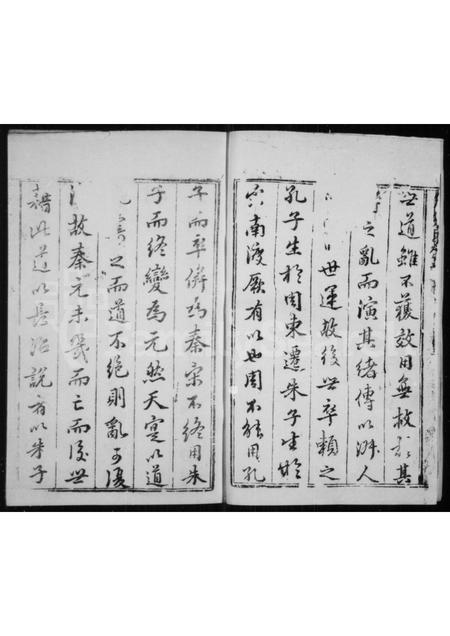 世道雖不獲效用無救於其
之亂而演其緒傳以淑人
世運故後世卒賴之
孔子生於周東遷朱子生於
宋南渡厥有以也周不能用孔
子而卒僞為秦宋不終用朱
子而終變為元然天寔以道
之而道不絕則亂可復
故秦元未幾而亡而後世
藉此道以長治說者以朱子